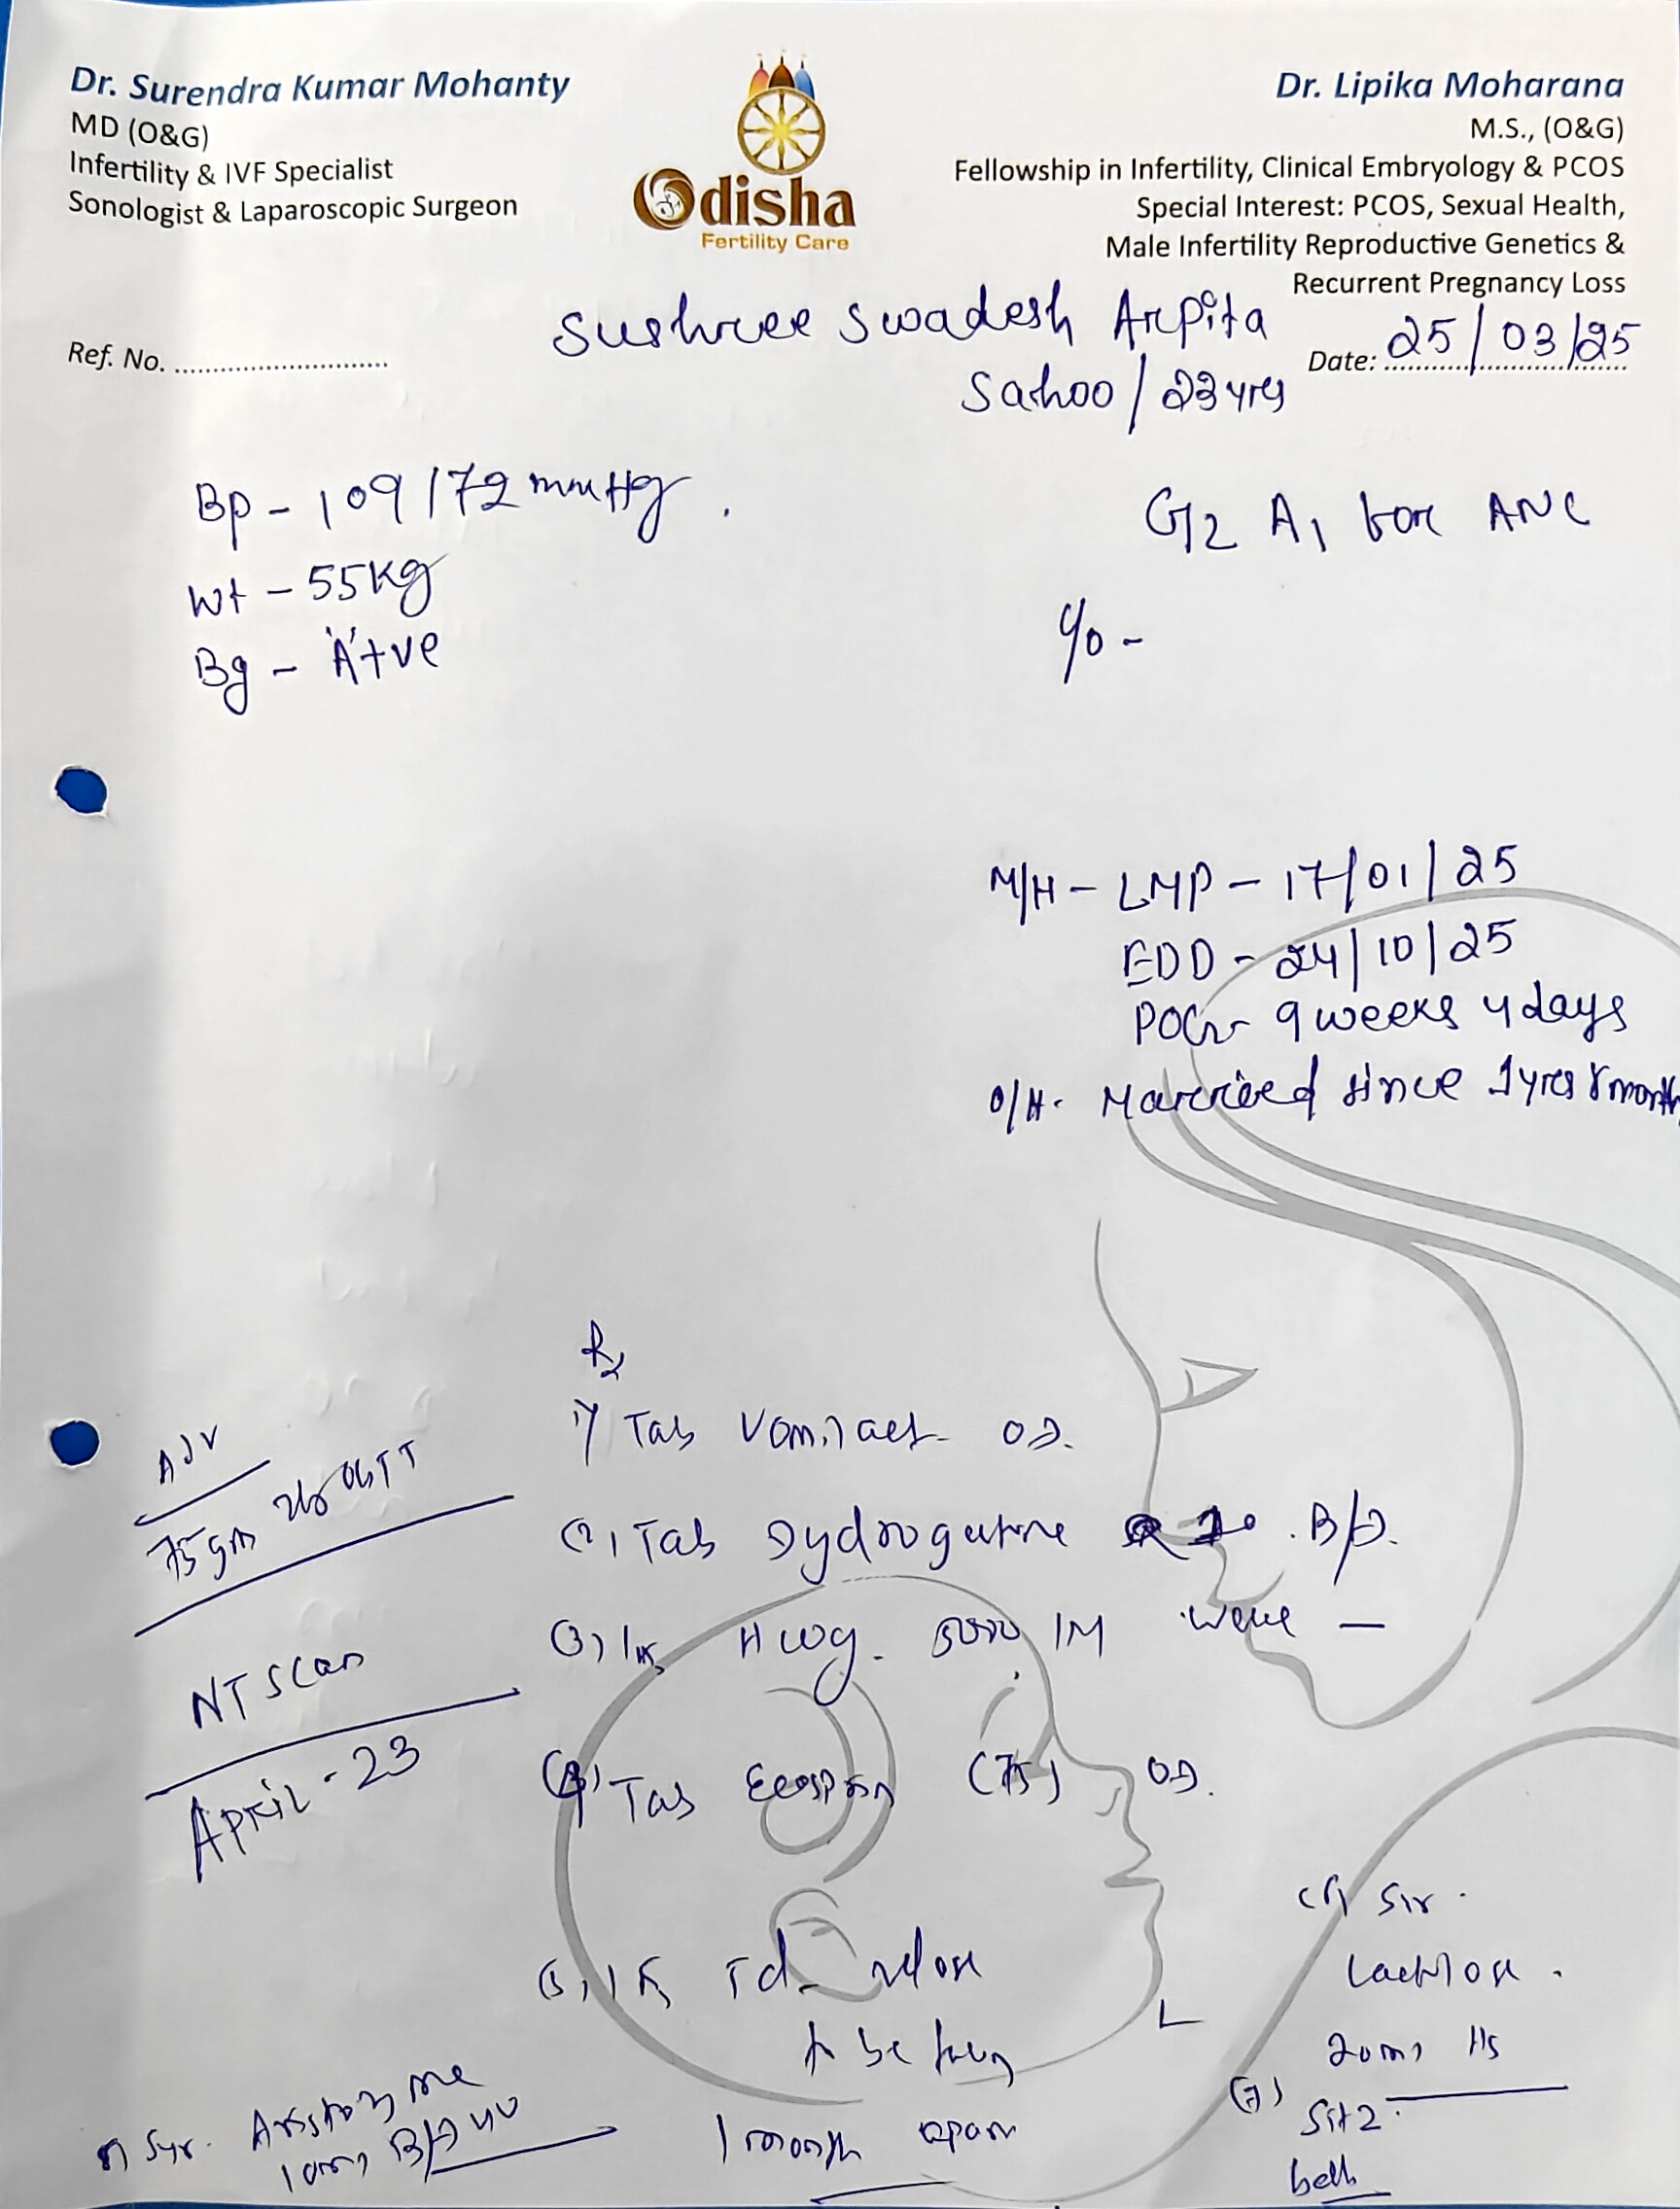 Dr. Surendra Kumar Mohanty
MD (O&G)
Infertility & IVF Specialist
Sonologist & Laparoscopic Surgeon
Odisha
Fertility Care
Dr. Lipika Moharana
M.S., (O&G)
Fellowship in Infertility, Clinical Embryology & PCOS
Special Interest: PCOS, Sexual Health,
Male Infertility Reproductive Genetics &
Recurrent Pregnancy Loss
Ref. No. ............................
Date: 25/03/25
Sushree Swadesh Arpita
Sahoo / 23 yrs
Bp - 109/72 mmHg.
Wt - 55kg
Bg - 'A'+ve
G2 A1 for ANC
C/o -
M/H - LMP - 17/01/25
EDD - 24/10/25
POG - 9 weeks 4 days
O/H - Married since 1yrs 8 month
Rx
1) Tab OD.
2) Tab 10 B/D.
3) Inj 5000 IM
4) Tab Ecosprin (75) OD.
5) Inj Td
to be
1 month apart
ADV
75gm OGTT
NT Scan
April - 23
Syr. Aristozyme
10ml B/D
Lactulose
20ml HS
7) Sitz
bath